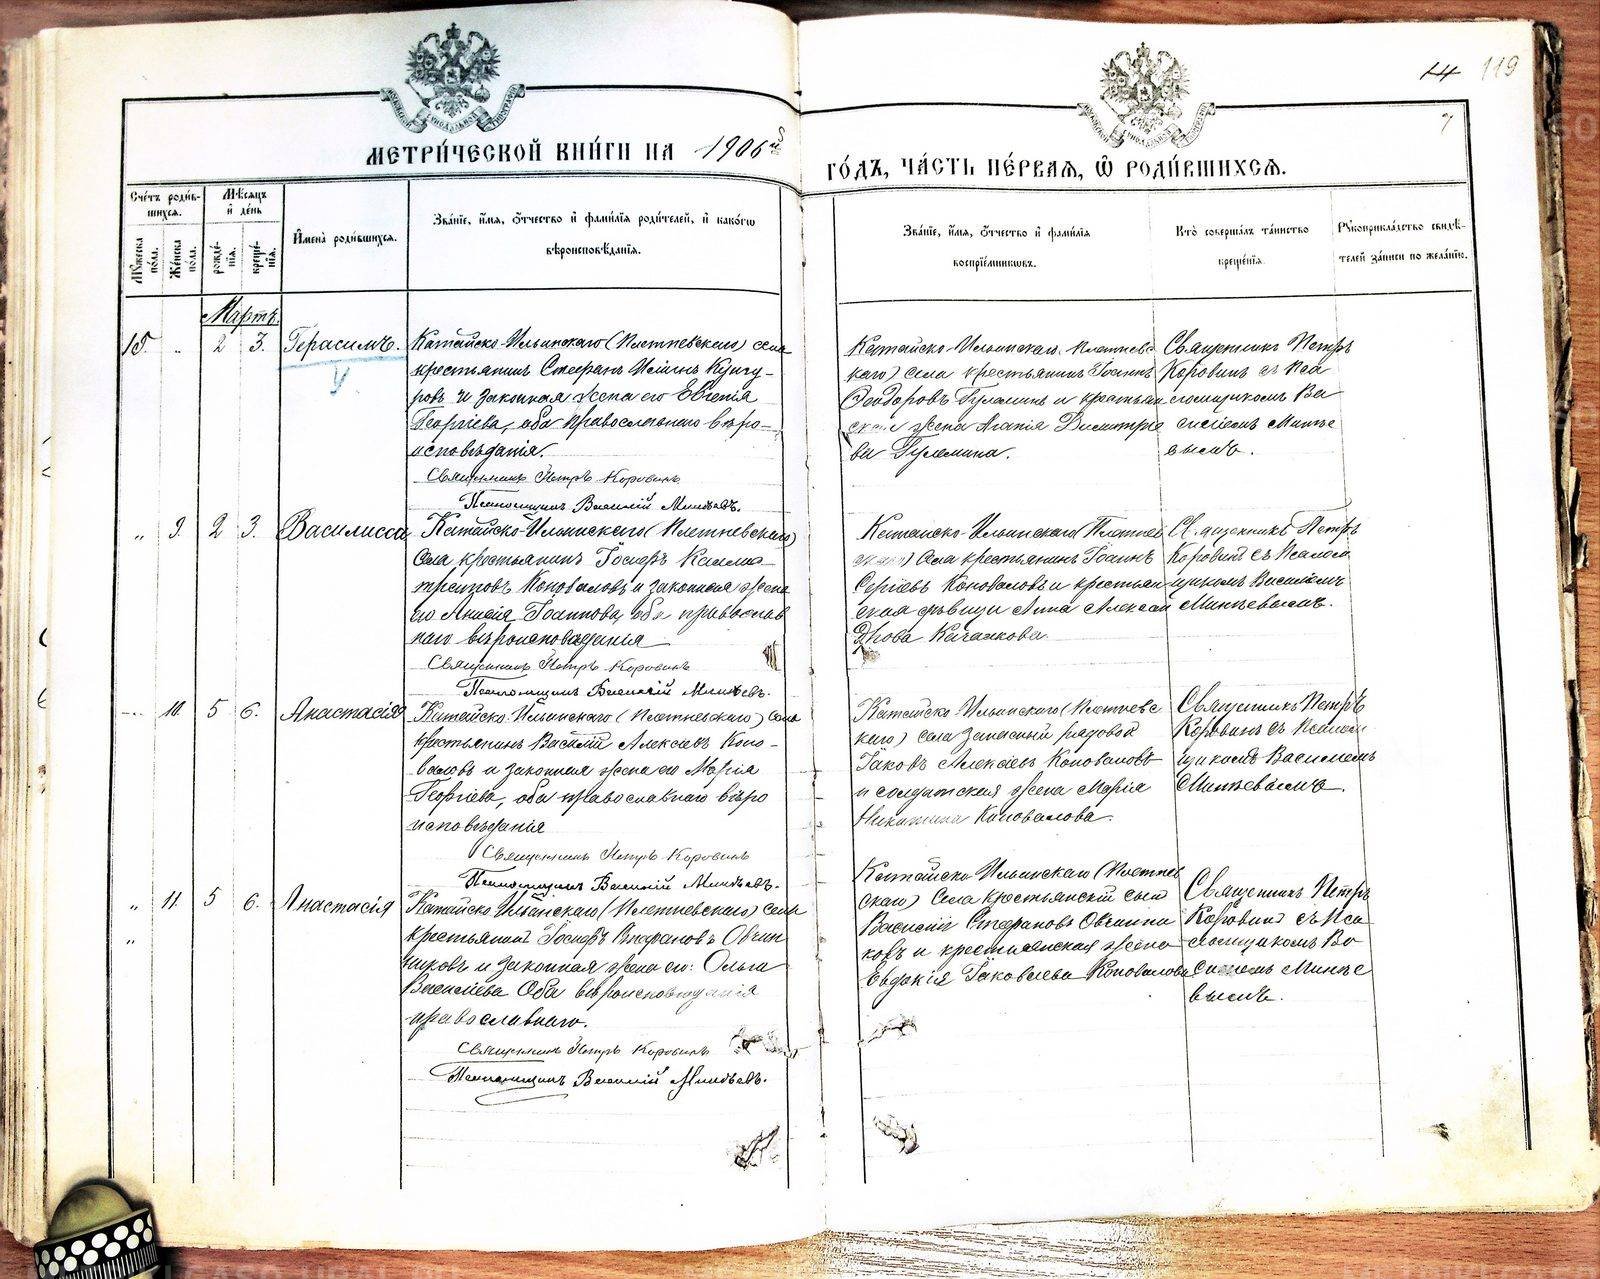 14 119
7
МЕТРИ́ЧЕСКОЙ КНИ́ГИ НА 1906й
ГО́ДЪ, ЧА́СТЬ ПЕ́РВАЯ, Ѿ РОДИ́ВШИХСЯ.
Сче́тъ роди́в-
шихся.
Мꙋ́жеска по́ла.
Же́нска по́ла.
Мѣ́сяцъ
и҆ де́нь
рожде́-
нїя.
креще́-
нїя.
И҆мена̀ роди́вшихся.
Зва́нїе, и҆́мя, ѻ҆́тчество и҆ фами́лїя роди́телей, и҆ како́гѡ
вѣроисповѣ́данїя.
Зва́нїе, и҆́мя, ѻ҆́тчество и҆ фами́лїя
воспрїе́мникѡвъ.
Кто̀ соверша́лъ та́инство
креще́нїя.
Рꙋкоприкла́дство свидѣ́-
телей за́писи по жела́нїю.
Мартъ.
15. „ 2 3. Герасимъ.
Катайско-Ильинскаго (Плетневскаго) села
крестьянинъ Стефанъ Кунгу-
ровъ и законная жена его Евгенія
Георгіева, оба православнаго вѣро-
исповѣданія.
Священникъ Петръ Коровинъ
Псаломщикъ Василій Минѣевъ.
Катайско-Ильинскаго Плетневс
каго) села крестьянинъ Іоаннъ
Феодоровъ и крестьян
ская жена Агапія Димитріе
ва
Священникъ Петръ
Коровинъ съ Пса
ломщикомъ Ва
силіемъ Минѣе
вымъ.
„ 9. 2 3. Василисса
Катайско-Ильинскаго (Плетневскаго)
села крестьянинъ Іосифъ Калли-
стратовъ Коноваловъ и законная жена
его Анисія Іоаннова, оба православ
наго вѣроисповѣданія
Священникъ Петръ Коровинъ
Псаломщикъ Василій Минѣевъ.
Катайско-Ильинскаго (Плетнев
скаго) села крестьянинъ Іоаннъ
Сергіевъ Коноваловъ и крестьян
ская дѣвица Анна Алексан
дрова
Священникъ Петръ
Коровинъ съ Псалом
щикомъ Василіемъ
Минѣевымъ.
10. 5 6. Анастасія
Катайско-Ильинскаго (Плетневскаго) села
крестьянинъ Василій Алексѣевъ Коно-
валовъ и законная жена его Марія
Георгіева, оба православнаго вѣро
исповѣданія
Священникъ Петръ Коровинъ
Псаломщикъ Василій Минѣевъ.
Катайско-Ильинскаго (Плетневс
каго) села запасный рядовой
Іаковъ Алексѣевъ Коноваловъ
и солдатская жена Марія
Никитина Коновалова.
Священникъ Петръ
Коровинъ съ Псалом
щикомъ Василіемъ
Минѣевымъ.
„ 11. 5 6. Анастасія
„
Катайско-Ильинскаго (Плетневскаго) села
крестьянинъ Іосифъ Овчин
никовъ и законная жена его: Ольга
Василіева Оба вѣроисповѣданія
православнаго.
Священникъ Петръ Коровинъ
Псаломщикъ Василій Минѣевъ.
Катайско-Ильинскаго (Плетнев
скаго) села крестьянскій сынъ
Василій Стефановъ Овчинни
ковъ и крестьянская жена
Евдокія Іаковлева Коновалова
Священникъ Петръ
Коровинъ съ Пса
ломщикомъ Ва
силіемъ Минѣе
вымъ.